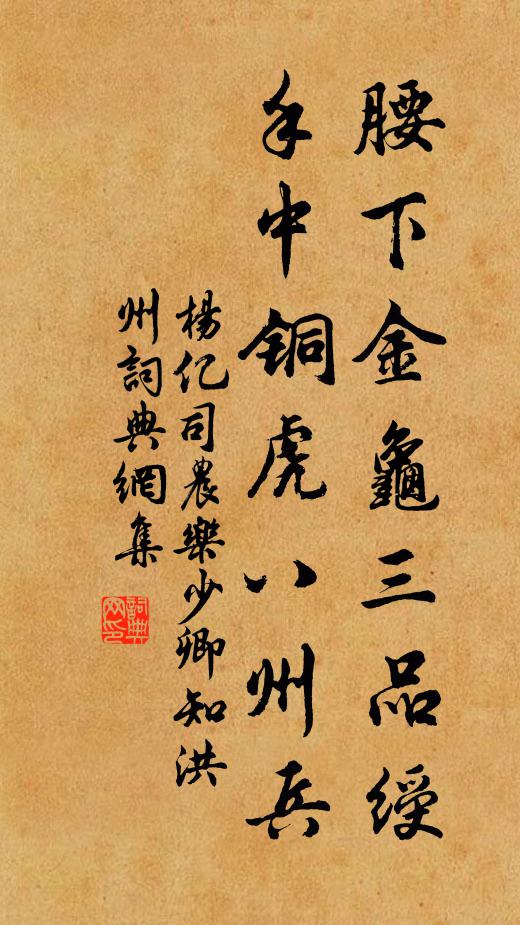 腰下金龜三品綬
手中铜虎八州兵
楊亿司農樂少卿知洪
州詞典網集
詞典
网印